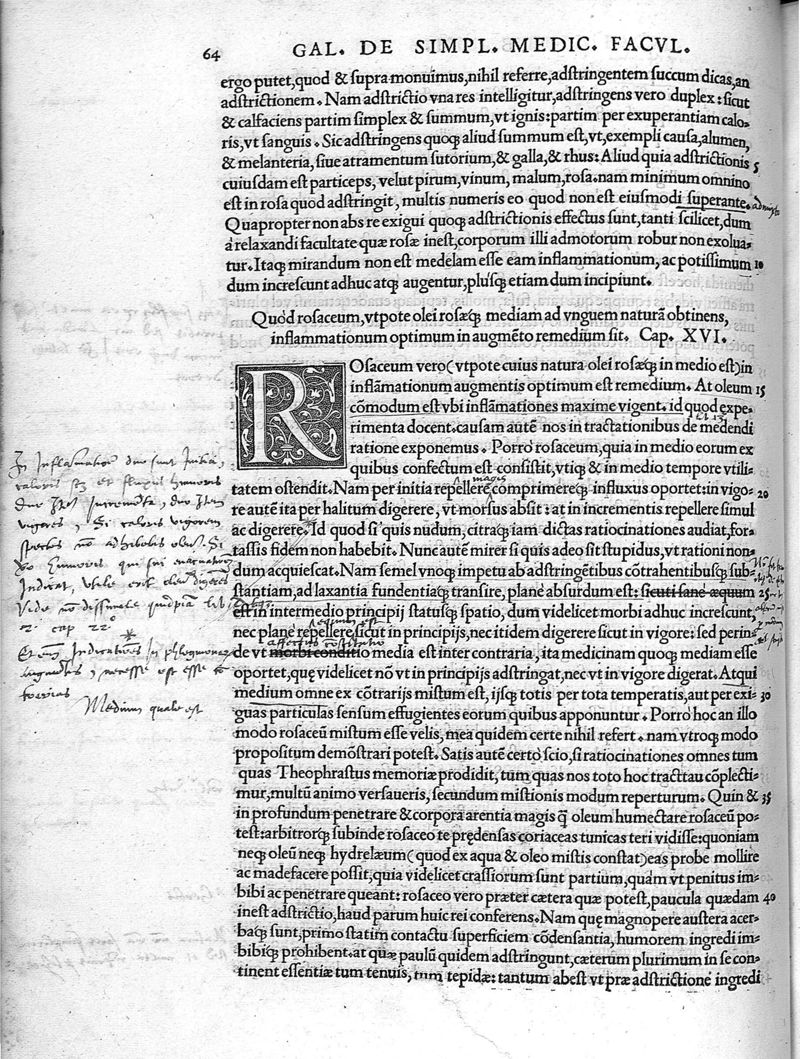 64 GAL. DE SIMPL. MEDIC. FACVL.
ergo putet,quod & supra monuimus,nihil referre,adstringentem succum dicas,an
adstrictionem. Nam adstrictio vna res intelligitur,adstringens vero duplex: sicut
& calfaciens partim simplex & summum, vt ignis: partim per exuperantiam calo-
ris,vt sanguis. Sic adstringens quoq; aliud summum est,vt,exempli causa,alumen,
& melanteria, siue atramentum sutorium, & galla, & rhus: Aliud quia adstrictionis 5
cuiusdam est particeps, velut pirum, vinum, malum, rosa. nam minimum omnino
est in rosa quod adstringit, multis numeris eo quod non est eiusmodi superante.
Quapropter non abs re exigui quoq; adstrictionis effectus sunt,tanti scilicet,dum
à relaxandi facultate quæ rosæ inest,corporum illi admotorum robur non exolua-
tur. Itaq; mirandum non est medelam esse eam inflammationum, ac potissimum 10
dum increscunt adhuc atq; augentur, plusq; etiam dum incipiunt.
Quòd rosaceum, vtpote olei rosæq; mediam ad vnguem naturā obtinens,
inflammationum optimum in augmēto remedium sit. Cap. XVI.
ROsaceum vero( vtpote cuius natura olei rosæq; in medio est)in
inflāmationum augmentis optimum est remedium. At oleum 15
cōmodum est vbi inflāmationes maxime vigent. id quod expe-
rimenta docent. causam autē nos in tractationibus de medendi
ratione exponemus. Porrò rosaceum, quia in medio eorum ex
quibus confectum est consistit, vtiq; & in medio tempore vtili-
tatem ostendit. Nam per initia repellere comprimereq; influxus oportet: in vigo- 20
magis
re autē ita per halitum digerere, vt morsus absit: at in incrementis repellere simul
ac digerere. Id quod si quis nudum, citraq; iam dictas ratiocinationes audiat, for-
tassis fidem non habebit. Nunc autē mirer si quis adeo sit stupidus, vt rationi non-
dum acquiescat. Nam semel vnoq; impetu ab adstringētibus cōtrahentibusq; sub-
stantiam, ad laxantia fundentiaq; transire, planè absurdum est: sicuti sanè æquum 25
est in intermedio principij statusq; spatio, dum videlicet morbi adhuc increscunt,
nec planè repellere,sicut in principijs, nec itidem digerere sicut in vigore: sed perin-
de vt morbi conditio media est inter contraria, ita medicinam quoq; mediam esse
oportet, quę videlicet nō vt in principijs adstringat, nec vt in vigore digerat. Atqui
medium omne ex cōtrarijs mistum est, ijsq; totis per tota temperatis, aut per exi- 30
guas particulas sensum effugientes eorum quibus apponuntur. Porrò hoc an illo
modo rosaceū mistum esse velis, mea quidem certe nihil refert. nam vtroq; modo
propositum demōstrari potest. Satis autē certò scio, si ratiocinationes omnes tum
quas Theophrastus memoriæ prodidit, tum quas nos toto hoc tractatu cōplecti-
mur, multū animo versaueris, secundum mistionis modum reperturum. Quin & 35
in profundum penetrare & corpora arentia magis q̄ oleum humectare rosaceū po-
test: arbitrorq; subinde rosaceo te prędensas coriaceas tunicas teri vidisse: quoniam
neq; oleū neq; hydrelæum( quod ex aqua & oleo mistis constat)eas probe mollire
ac madefacere possit, quia videlicet crassiorum sunt partium, quàm vt penitus im-
bibi ac penetrare queant: rosaceo vero præter cætera quæ potest, paucula quædam 40
inest adstrictio, haud parum huic rei conferens. Nam quę magnopere austera acer-
baq; sunt, primo statim contactu superficiem cōdensantia, humorem ingredi im-
bibiq; prohibent. at quæ paulū quidem adstringunt, cæterum plurimum in se con-
tinent essentiæ tum tenuis, tum tepidæ: tantum abest vt præ adstrictione ingredi
Medium quale est